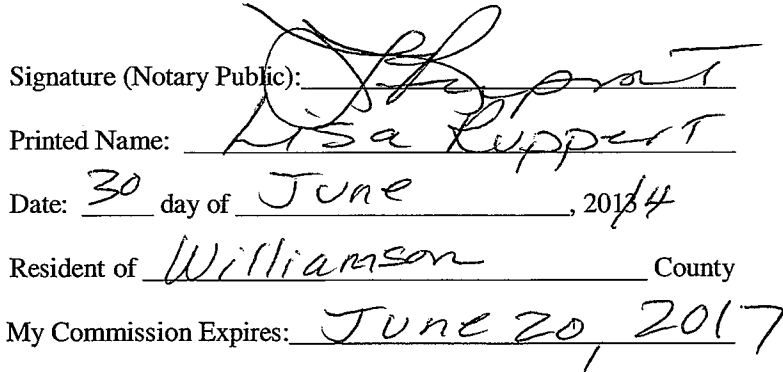 Signature (Notary Public): L Ruppert
Printed Name: Lisa Ruppert
Date: 30 day of June, 2013/4
Resident of Williamson County
My Commission Expires: June 20, 2017